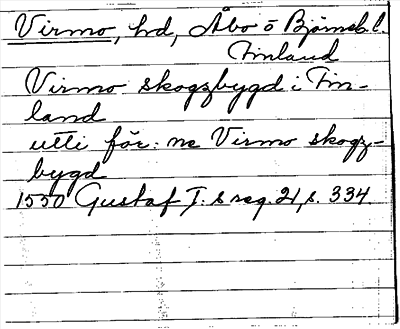 Virmo, hd, Åbo o Björneb. l.
Finland
Virmo skogzbygd i Fin-
land
utti för: ne Virmo skogz-
bygd
1550 Gustaf I: s reg. 21, s. 334.